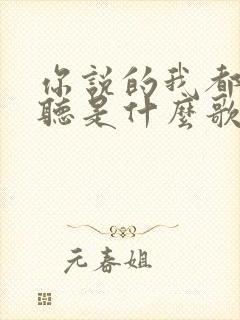 你說的我都
聽是什麼歌
元春姐